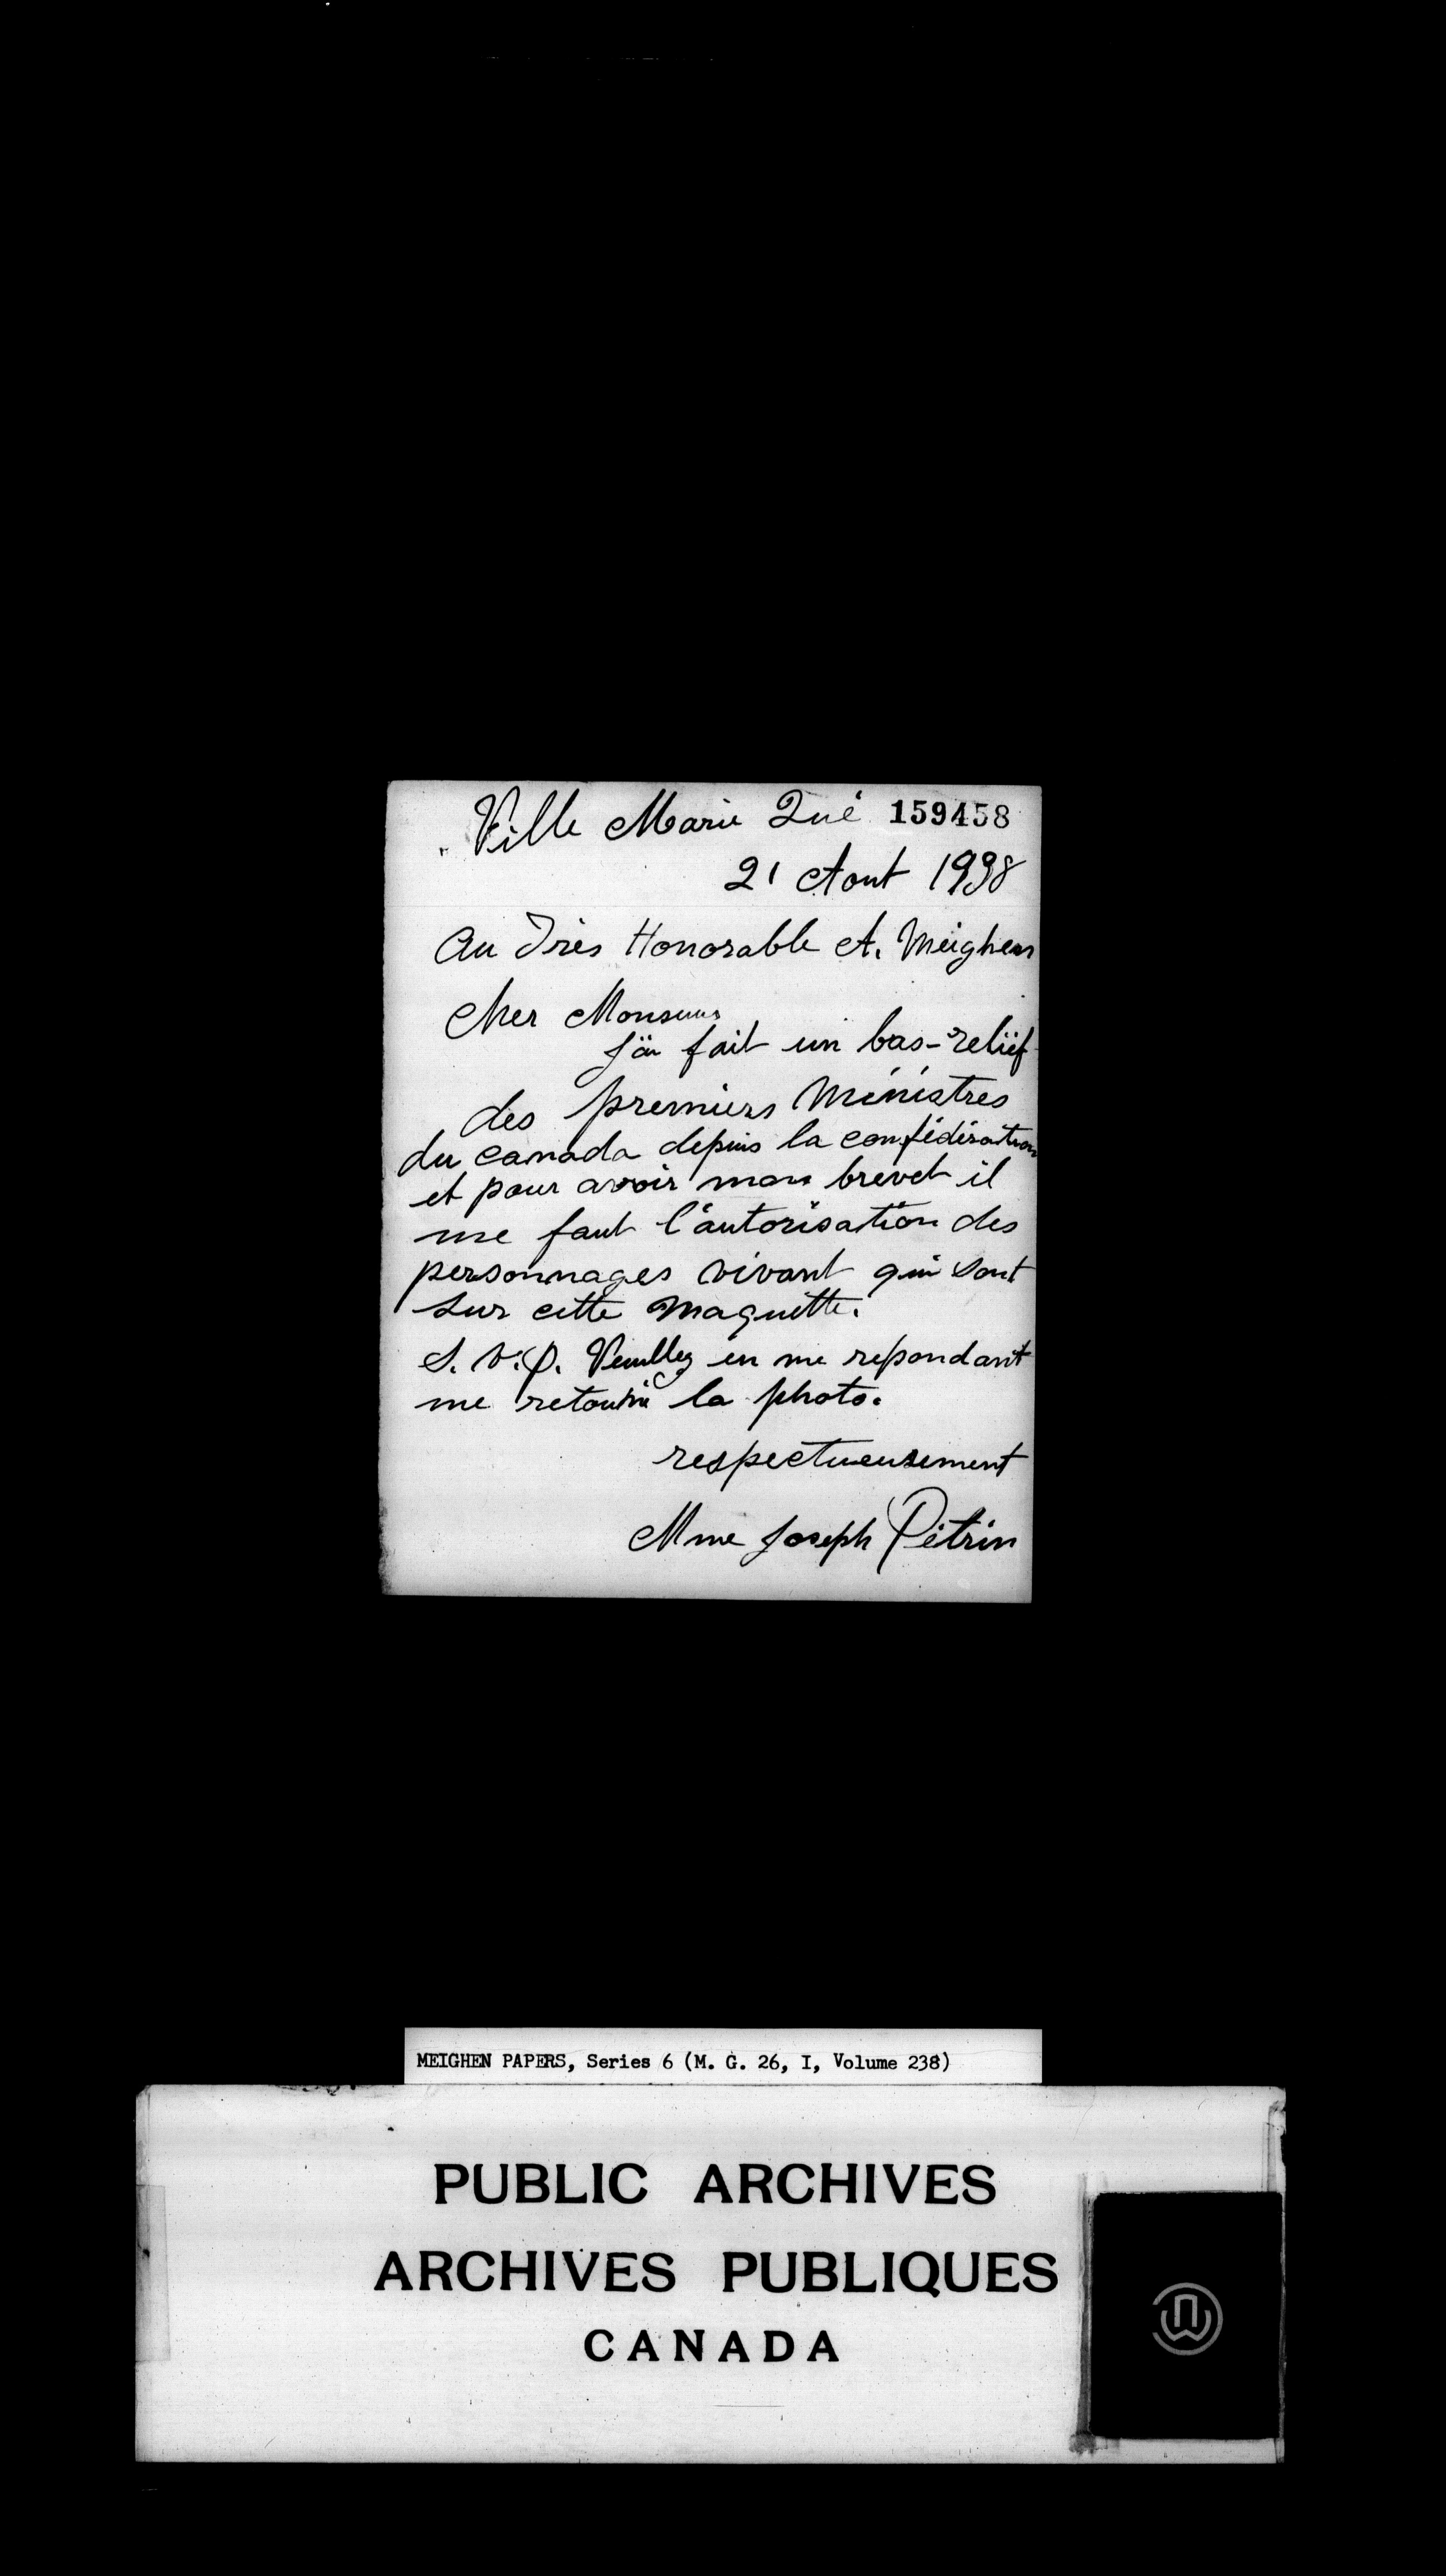 Ville Marie Qué 159458
21 Aout 1938
Au Très Honorable A. Meighen
Cher Monsieur
J'ai fait un bas-relief
des premiers Ministres
du Canada depuis la confédération
et pour avoir mon brevet il
me faut l'autorisation des
personnages vivant qui sont
sur cette maquette.
S.V.P. Veuillez en me repondant
me retourné la photo.
respectueusement
Mme Joseph Pétrin
MEIGHEN PAPERS, Series 6 (M. G. 26, I, Volume 238)
PUBLIC ARCHIVES
ARCHIVES PUBLIQUES
CANADA